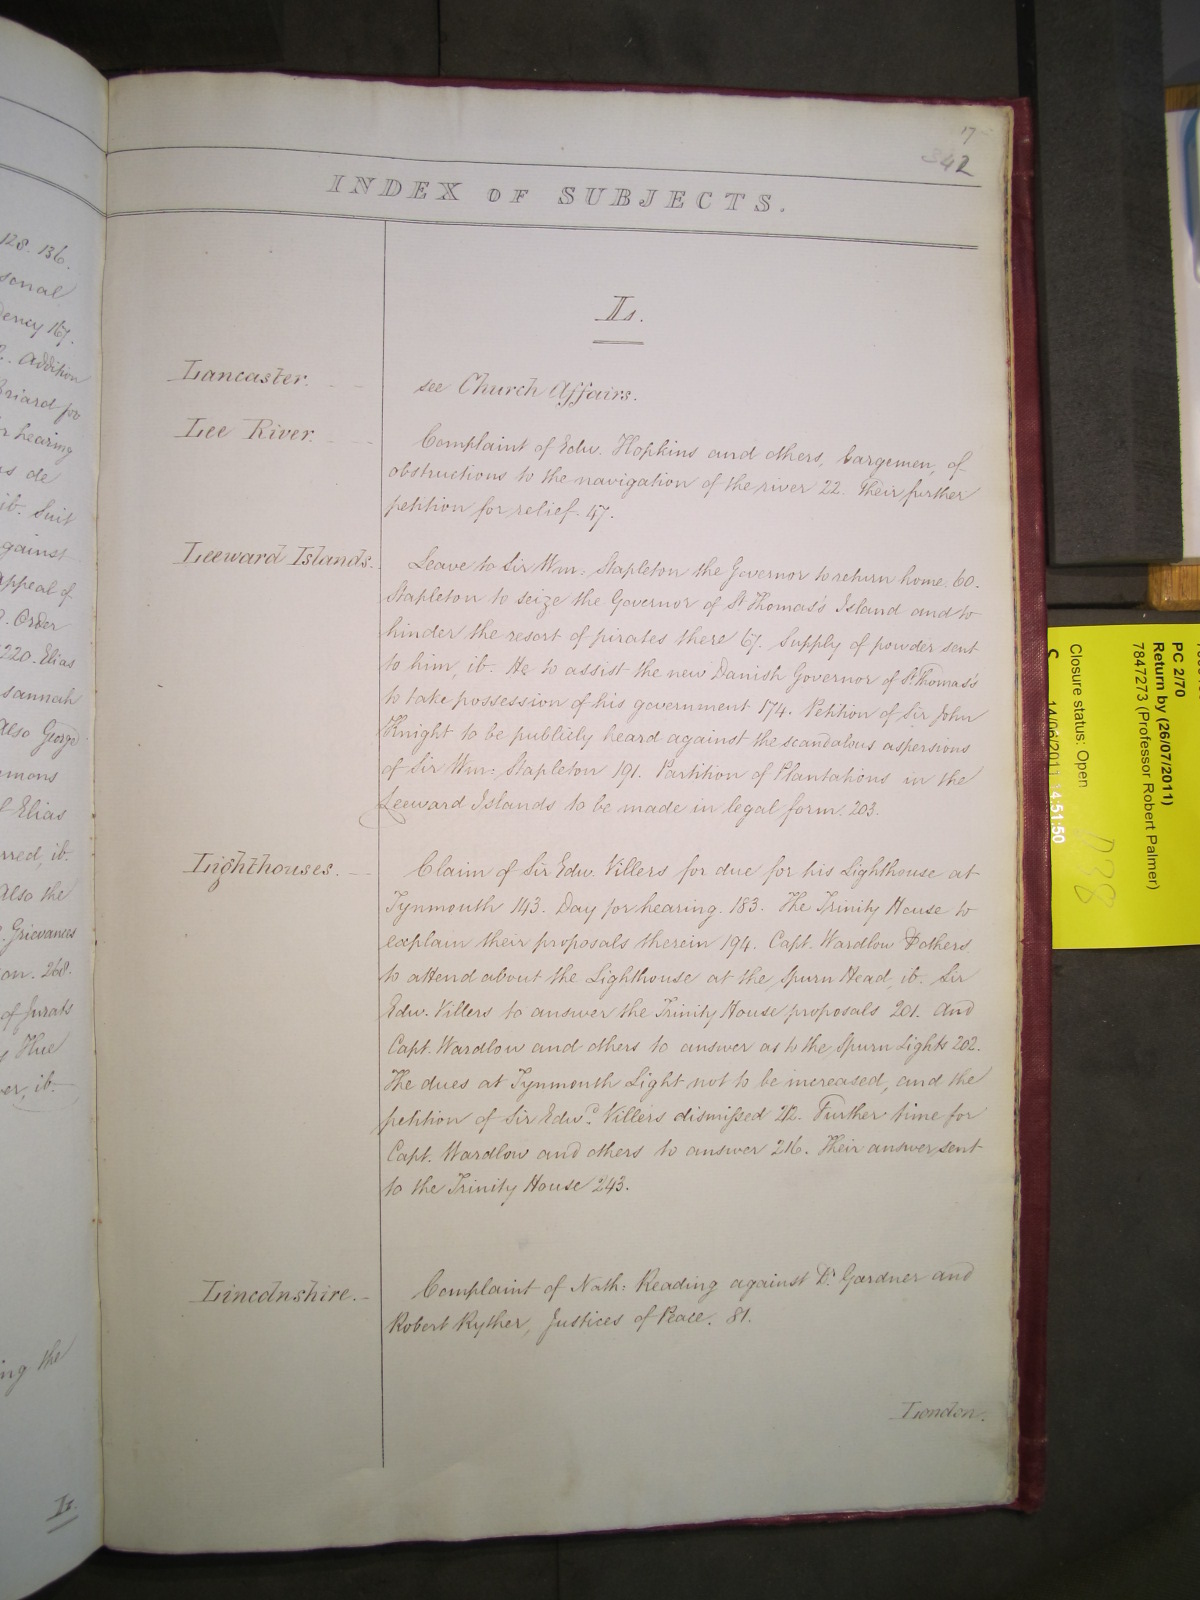 17
342
INDEX OF SUBJECTS.
L.
Lancaster.
see Church Affairs.
Lee River.
Complaint of Edw. Hopkins and others, bargemen, of
obstructions to the navigation of the river 22. Their further
petition for relief. 47.
Leeward Islands.
Leave to Sir Wm: Stapleton the Governor to return home. 60.
Stapleton to seize the Governor of St Thomas's Island and to
hinder the resort of pirates there 67. Supply of powder sent
to him, ib. He to assist the new Danish Governor of St Thomas's
to take possession of his government 174. Petition of Sir John
Knight to be publicly heard against the scandalous aspersions
of Sir Wm: Stapleton 191. Partition of Plantations in the
Leeward Islands to be made in legal form. 203.
Lighthouses.
Claim of Sir Edw. Villers for due for his Lighthouse at
Tynmouth 143. Day for hearing. 183. The Trinity House to
explain their proposals therein 194. Capt. Wardlow & others
to attend about the Lighthouse at the Spurn Head, ib. Sir
Edw. Villers to answer the Trinity House proposals 201. And
Capt. Wardlow and others to answer as to the Spurn Lights 202.
The dues at Tynmouth Light not to be increased, and the
petition of Sir Edwd. Villers dismissed 212. Further time for
Capt. Wardlow and others to answer 216. Their answer sent
to the Trinity House 243.
Lincolnshire.
Complaint of Nath: Reading against Dr. Gardner and
Robert Ryther, Justices of Peace. 81.
London.
128. 136.
167.
Addition
hearing
de
ib. Suit
Appeal of
Order
220. Elias
also George
Elias
ib.
Also the
Grievances
268.
of Jurats
Hue
ib.
the
L.
PC 2/70
Return by (26/07/2011)
7847273 (Professor Robert Palmer)
Closure status: Open
14/06/2011 14:51:50
D38